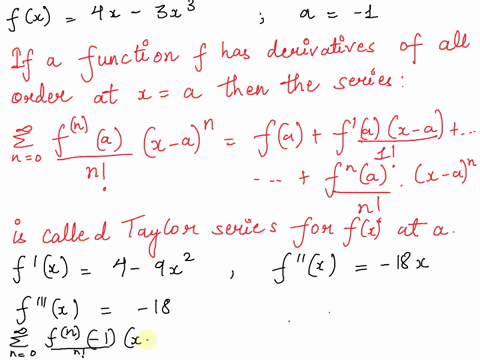 f(x) = 4x - 3x³ ; a = -1
If a function f has derivatives of all
order at x = a then the series:
∞∑n=0 f⁽ⁿ⁾(a)/n! (x-a)ⁿ = f(a) + f'(a)(x-a)/1! + ...
... + fⁿ(a)/n! . (x-a)ⁿ
is called Taylor series for f(x) at a.
f'(x) = 4 - 9x² , f''(x) = -18x
f'''(x) = -18
∞∑n=0 f⁽ⁿ⁾(-1)/n! (x